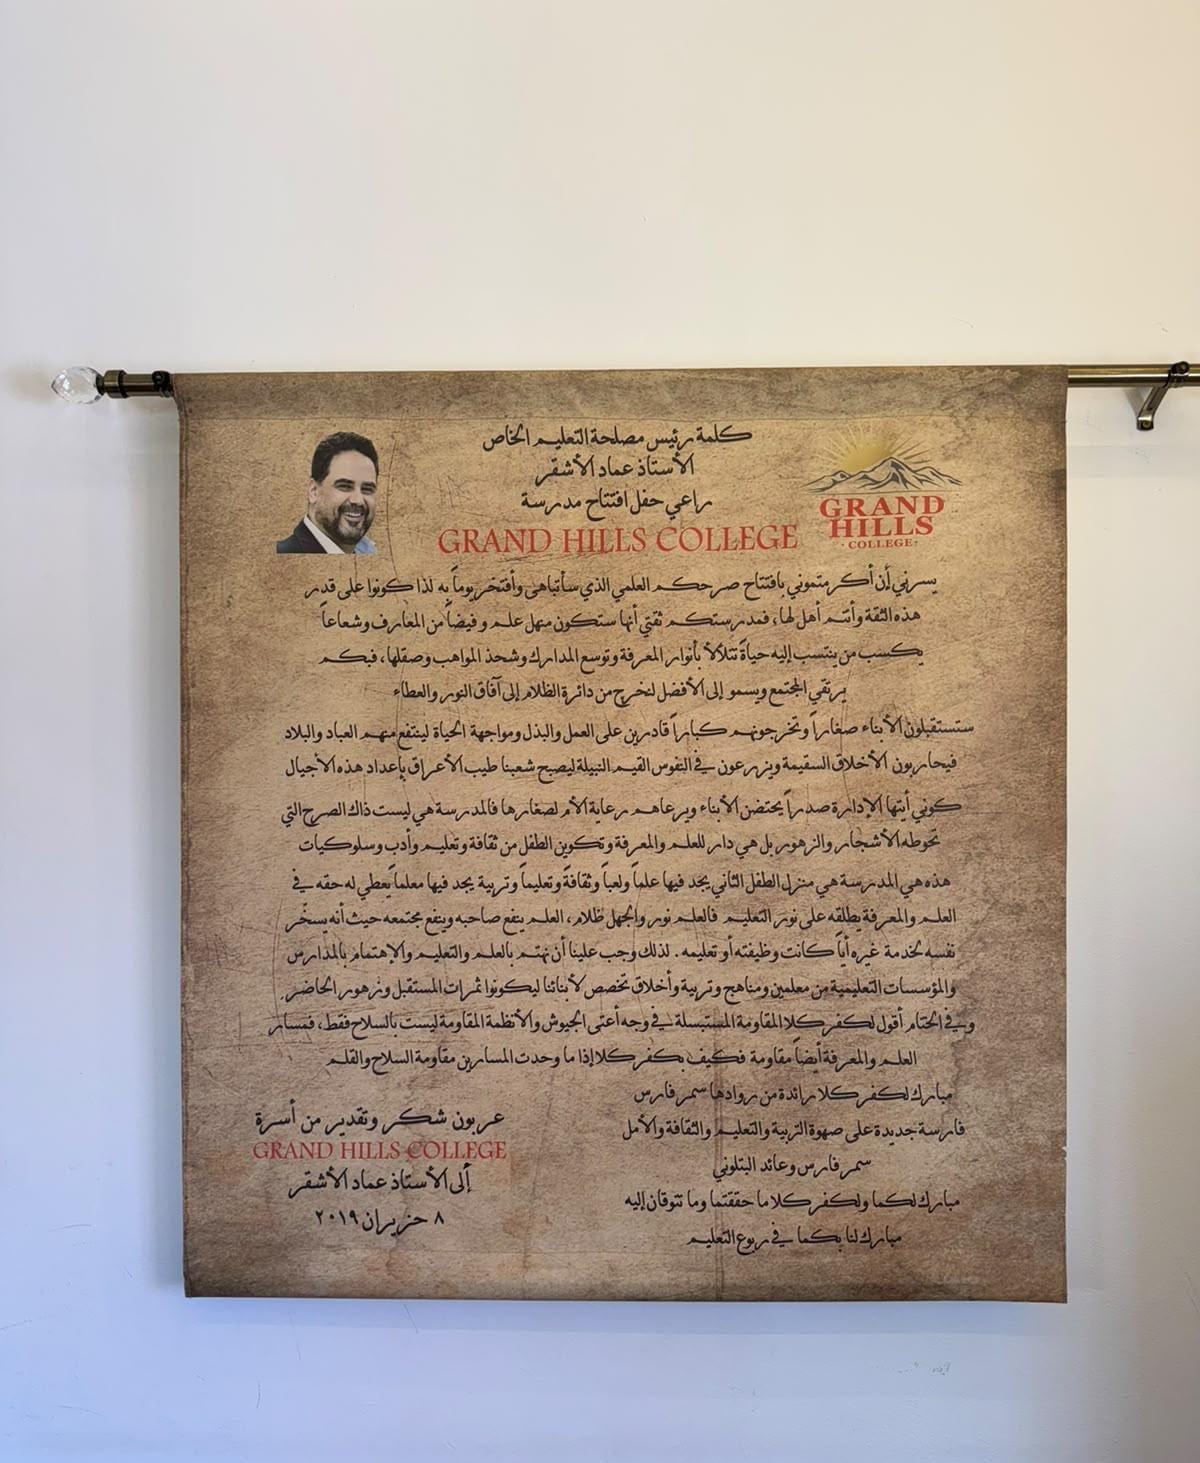 كلمة رئيس مصلحة التعليم الخاص
الأستاذ عماد الأشقر
راعي حفل افتتاح مدرسة
GRAND HILLS COLLEGE
GRAND
HILLS
· COLLEGE ·
يسرني أن أكرمتموني بافتتاح صرحكم العلمي الذي سأتباهى وأفتخر يوماً به لذا كونوا على قدر
هذه الثقة وأنتم أهل لها، فمدرستكم ثقتي أنها ستكون منهل علم وفيضاً من المعارف وشعاعاً
يكسب من ينتسب إليه حياةً تتلألأ بأنوار المعرفة وتوسع المدارك وشحذ المواهب وصقلها، فبكم
يرتقي المجتمع ويسمو إلى الأفضل لنخرج من دائرة الظلام إلى آفاق النور والعطاء
ستستقبلون الأبناء صغاراً وتخرجونهم كباراً قادرين على العمل والبذل ومواجهة الحياة لينتفع منهم العباد والبلاد
فيحاربون الأخلاق السقيمة ويزرعون في النفوس القيم النبيلة ليصبح شعبنا طيب الأعراق بإعداد هذه الأجيال
كوني أيتها الإدارة صدراً يحتضن الأبناء ويرعاهم رعاية الأم لصغارها فالمدرسة هي ليست ذاك الصرح التي
تحوطه الأشجار والزهور بل هي دار للعلم والمعرفة وتكوين الطفل من ثقافة وتعليم وأدب وسلوكيات
هذه هي المدرسة هي منزل الطفل الثاني يجد فيها علماً ولعباً وثقافةً وتعليماً وتربية يجد فيها معلماً يعطي له حقه في
العلم والمعرفة يطلقه على نور التعليم فالعلم نور والجهل ظلام، العلم ينفع صاحبه وينفع مجتمعه حيث أنه يسخّر
نفسه لخدمة غيره أياً كانت وظيفته أو تعليمه. لذلك وجب علينا أن نهتم بالعلم والتعليم والإهتمام بالمدارس
والمؤسسات التعليمية من معلمين ومناهج وتربية وأخلاق تخصص لأبنائنا ليكونوا ثمرات المستقبل وزهور الحاضر.
وفي الختام أقول لكفركلا المقاومة المستبسلة في وجه أعتى الجيوش والأنظمة المقاومة ليست بالسلاح فقط، فمسار
العلم والمعرفة أيضاً مقاومة فكيف بكفركلا إذا ما وحدت المسارين مقاومة السلاح والقلم
مبارك لكفركلا رائدة من روادها سمر فارس
فارسة جديدة على صهوة التربية والتعليم والثقافة والأمل
سمر فارس وعائد البتلوني
مبارك لكما ولكفركلا ما حققتما وما تتوقان إليه
مبارك لنا بكما في ربوع التعليم
عربون شكر وتقدير من أسرة
GRAND HILLS COLLEGE
إلى الأستاذ عماد الأشقر
٨ حزيران ٢٠١٩